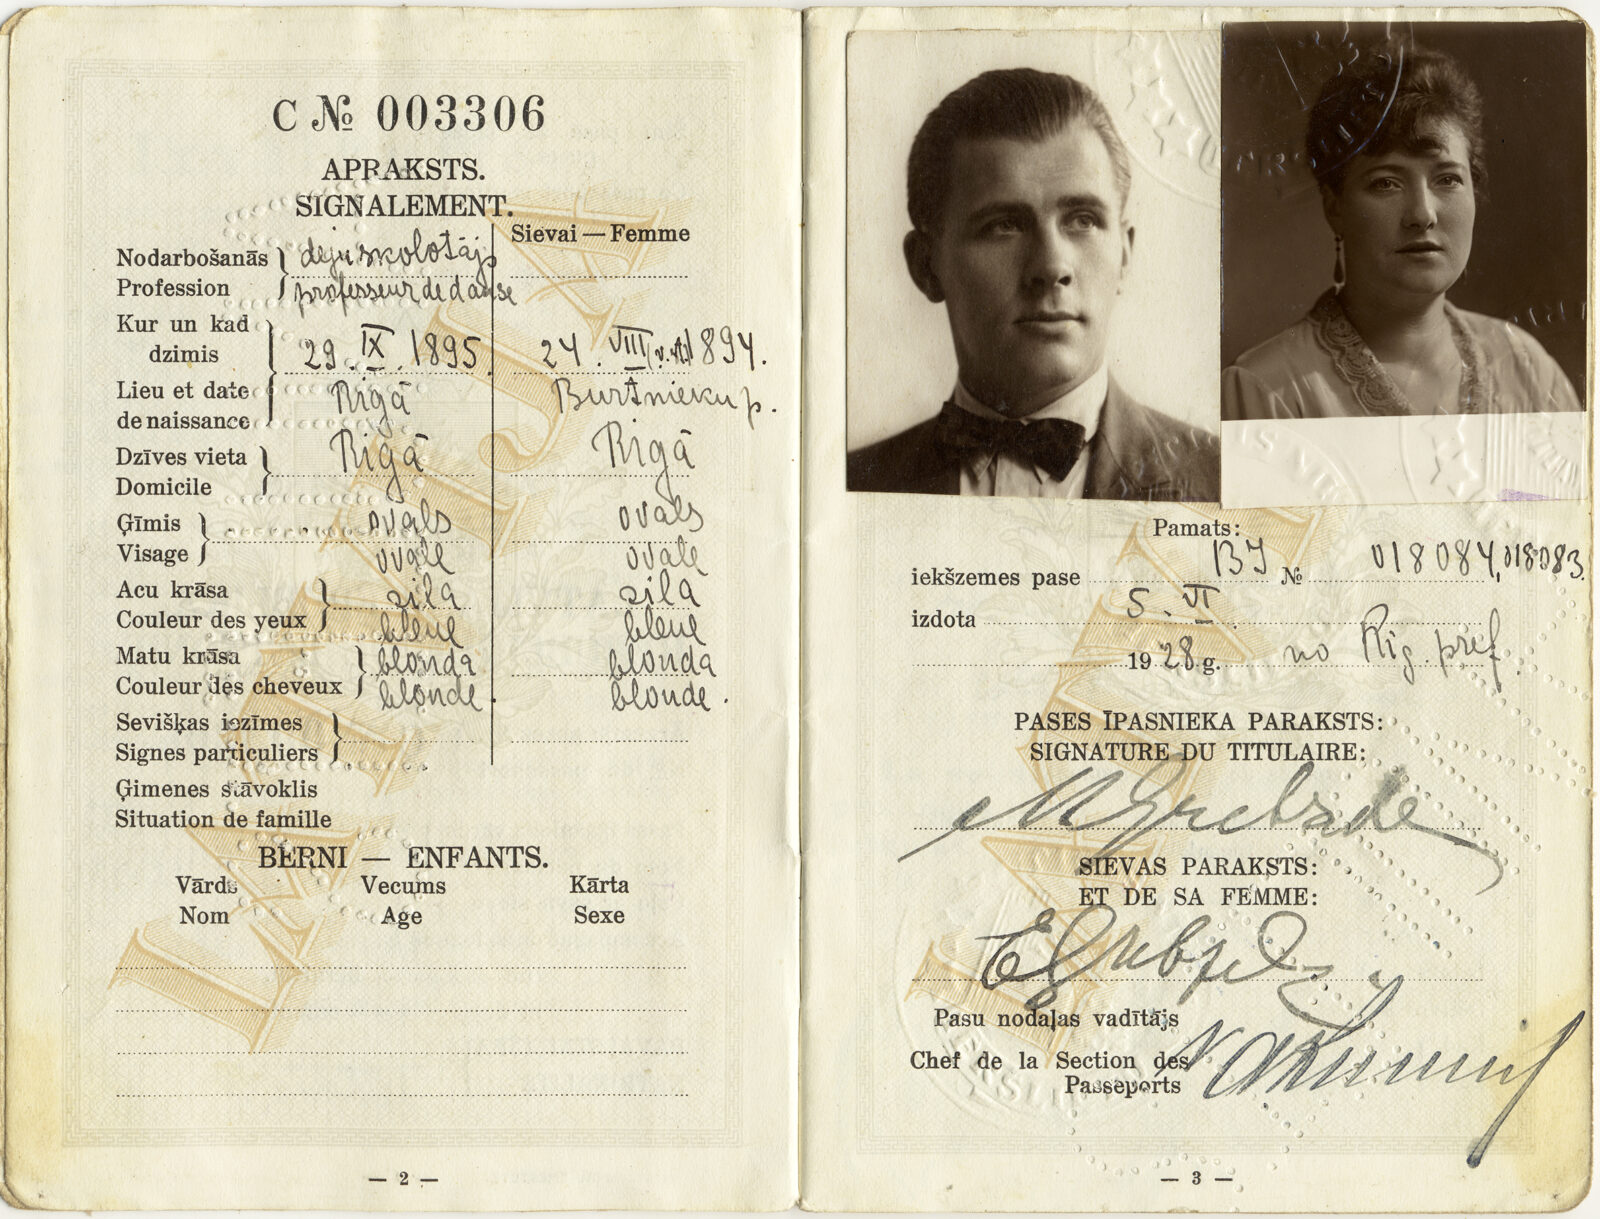 C № 003306
APRAKSTS.
SIGNALEMENT.
Sievai — Femme
Nodarbošanās deju skolotājs
Profession professeur de danse
Kur un kad
dzimis 29. IX. 1895 24. VIII 1894.
Lieu et date Rīgā Burtnieku p.
de naissance
Dzīves vieta Rīgā Rīgā
Domicile
Ģīmis ovals ovals
Visage ovale ovale
Acu krāsa zila zila
Couleur des yeux bleue bleue
Matu krāsa blonda blonda
Couleur des cheveux blonde. blonde.
Sevišķas iezīmes
Signes particuliers
Ģimenes stāvoklis
Situation de famille
BERNI — ENFANTS.
Vārds Vecums Kārta
Nom Age Sexe
— 2 —
LATVIJA
Pamats:
iekšzemes pase BJ № 018084, 018083.
izdota 5. VI
1928 g. no Rig. pref.
PASES ĪPASNIEKA PARAKSTS:
SIGNATURE DU TITULAIRE:
SIEVAS PARAKSTS:
ET DE SA FEMME:
Pasu nodaļas vadītājs
Chef de la Section des
Passeports
— 3 —